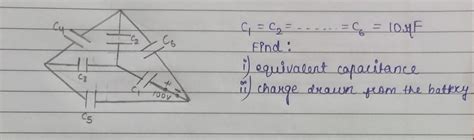 C₄
C₂
C₆
C₃
C₁
100V
C₅
C₁ = C₂ = ........ = C₆ = 10 μF
Find :
i) equivalent capacitance
ii) charge drawn from the battery